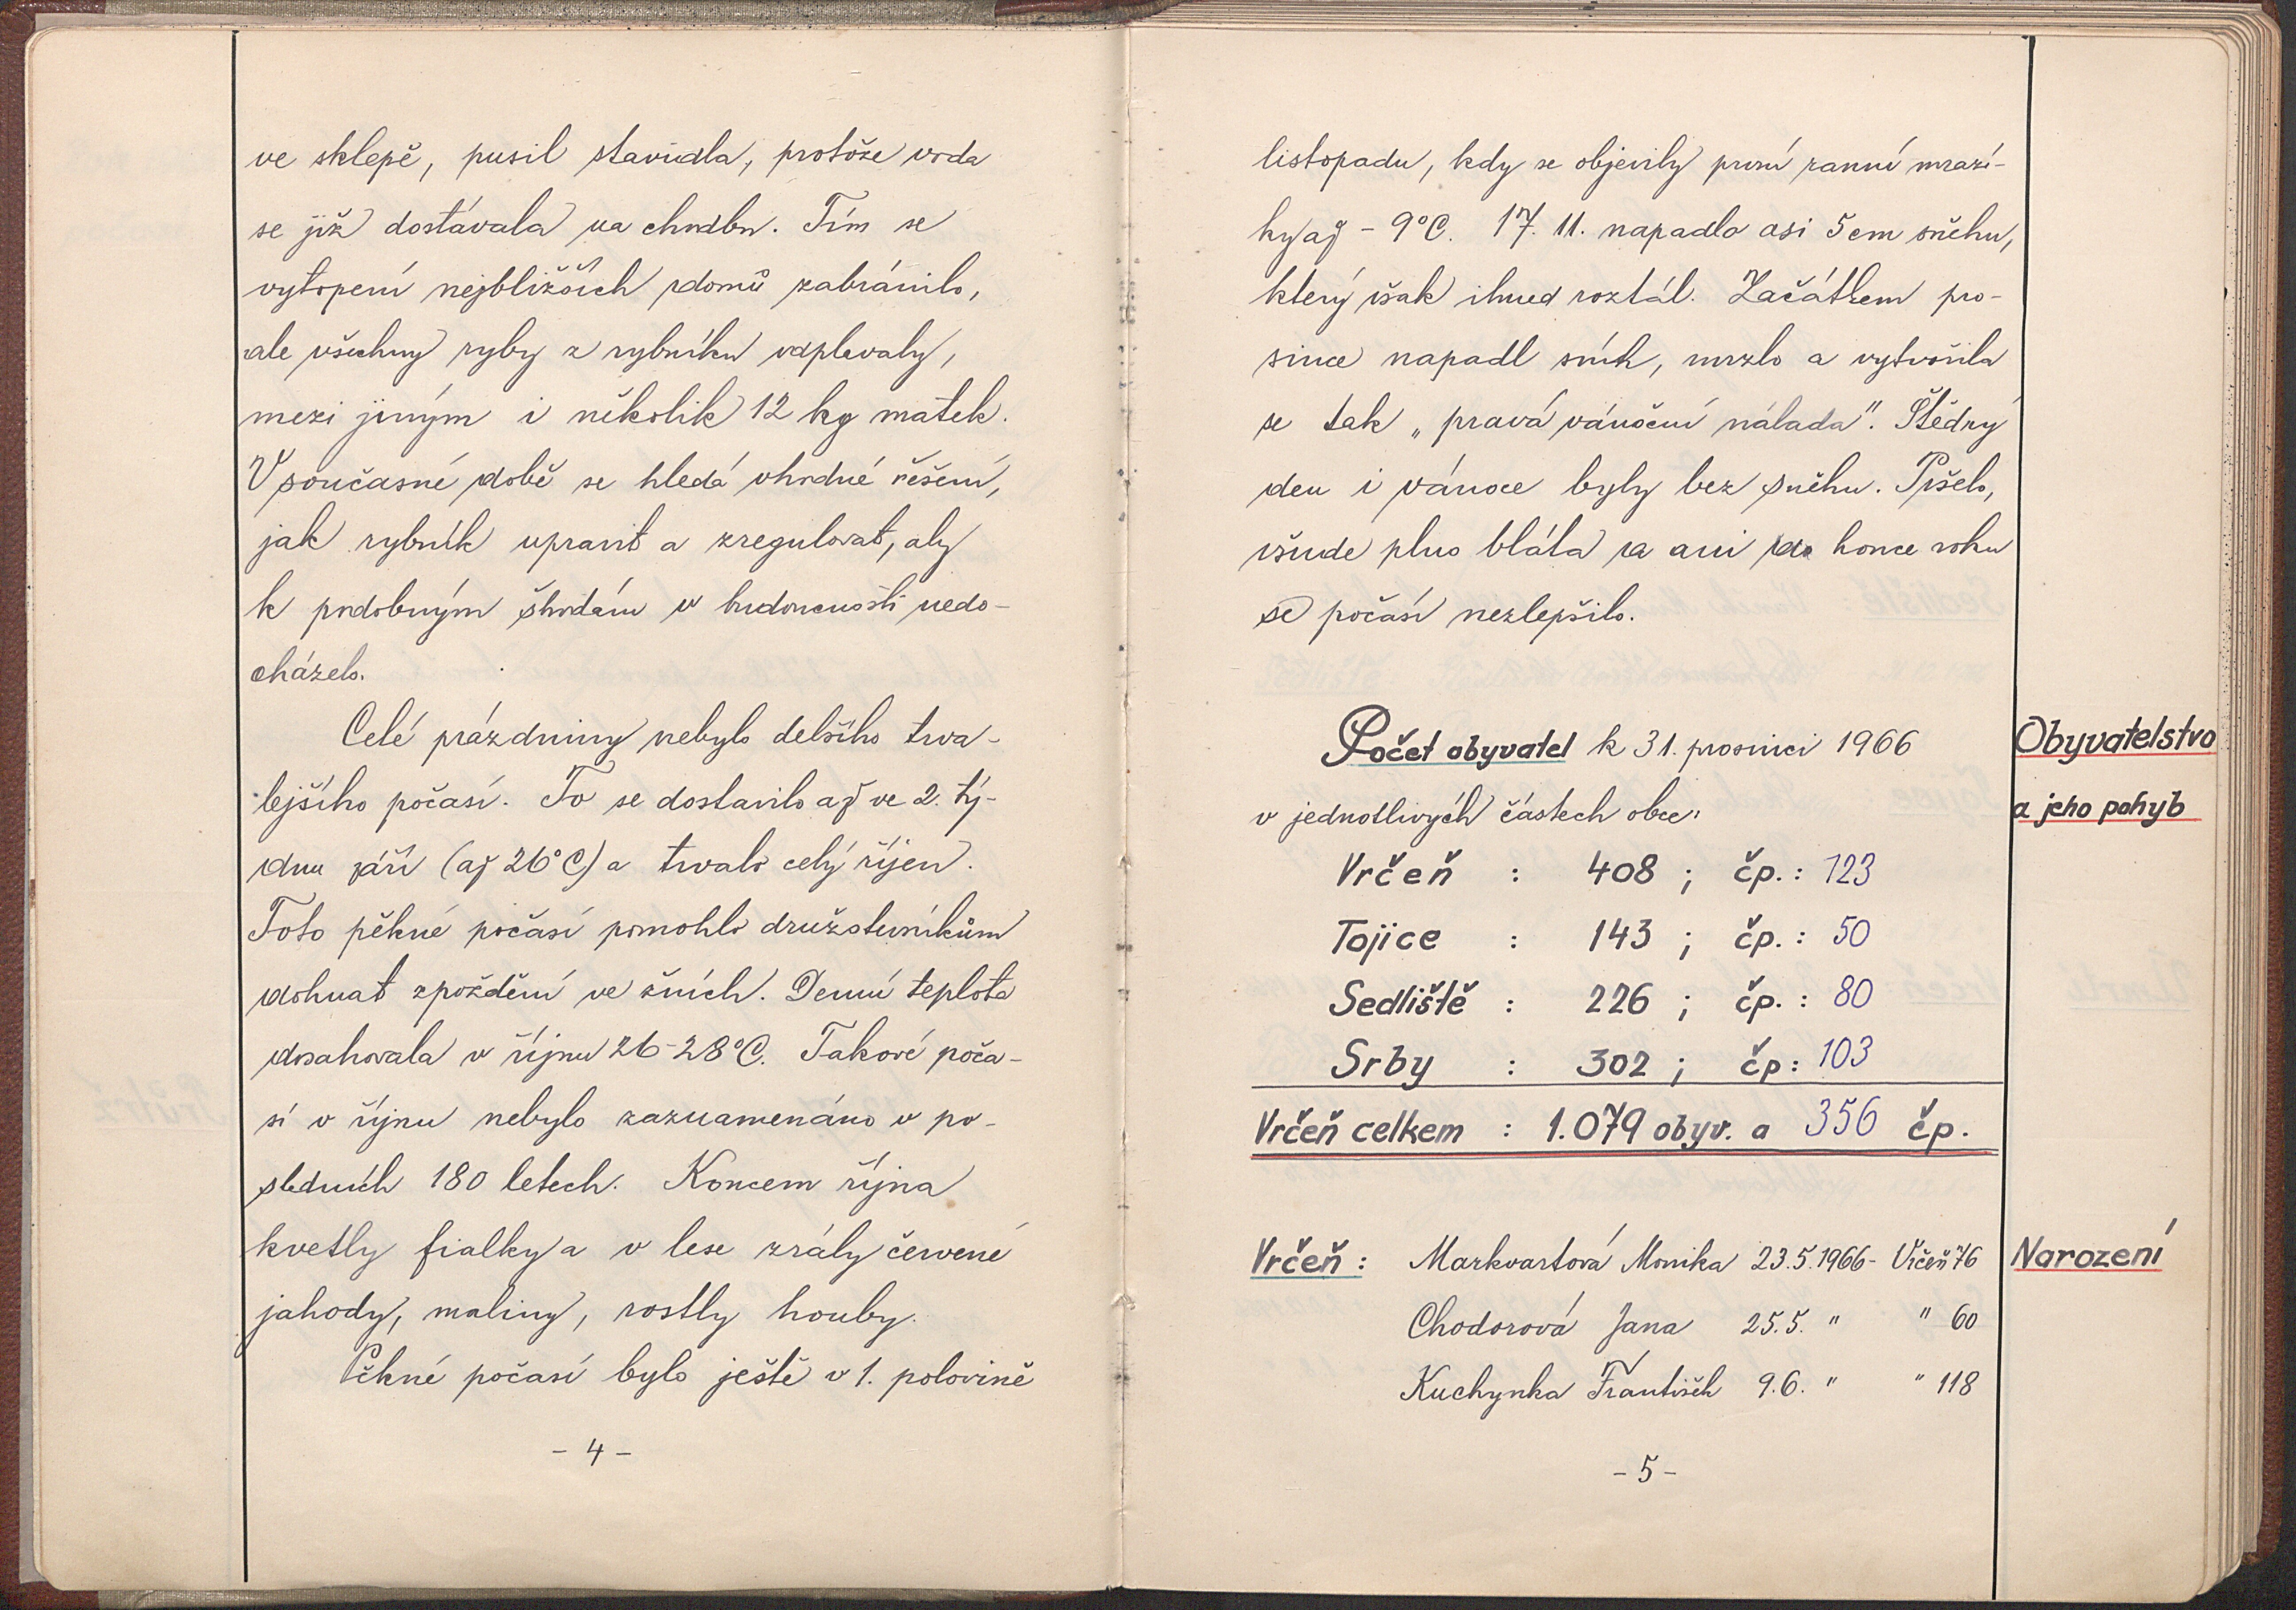 ve sklepě, pusil stavidla, protože voda
se již dostávala na chodbu. Tím se
vytopení nejbližších domů zabránilo,
ale všechny ryby z rybníku vyplavaly,
mezi jiným i několik 12 kg matek.
V současné době se hledá vhodné řešení,
jak rybník upravit a zregulovat, aby
k podobným škodám v budoucnosti nedo-
cházelo.
Celé prázdniny nebylo delšího trva-
lejšího počasí. To se dostavilo až ve 2. tý-
dnu září (až 26°C) a trvalo celý říjen.
Toto pěkné počasí pomohlo družstevníkům
dohnat zpoždění ve žních. Denní teplota
dosahovala v říjnu 26-28°C. Takové poča-
sí v říjnu nebylo zaznamenáno v po-
sledních 180 letech. Koncem října
kvetly fialky a v lese zrály červené
jahody, maliny, rostly houby.
Pěkné počasí bylo ještě v 1. polovině
- 4 -
listopadu, kdy se objevily první ranní mrazí-
ky až - 9°C. 17. 11. napadlo asi 5 cm sněhu,
který však ihned roztál. Začátkem pro-
since napadl sníh, mrzlo a vytvořila
se tak „pravá vánoční nálada". Štědrý
den i vánoce byly bez sněhu. Pršelo,
všude plno bláta a ani do konce roku
se počasí nezlepšilo.
Počet obyvatel k 31. prosinci 1966
v jednotlivých částech obce:
Obyvatelstvo
a jeho pohyb
Vrčeň : 408 ; čp. : 123
Tojice : 143 ; čp. : 50
Sedliště : 226 ; čp. : 80
Srby : 302 ; čp : 103
Vrčeň celkem : 1.079 obyv. a 356 čp.
Vrčeň : Markvartová Monika 23.5.1966 - Vrčeň 76
Narození
Chodorová Jana 25.5. " " 60
Kuchynka František 9.6. " " 118
- 5 -